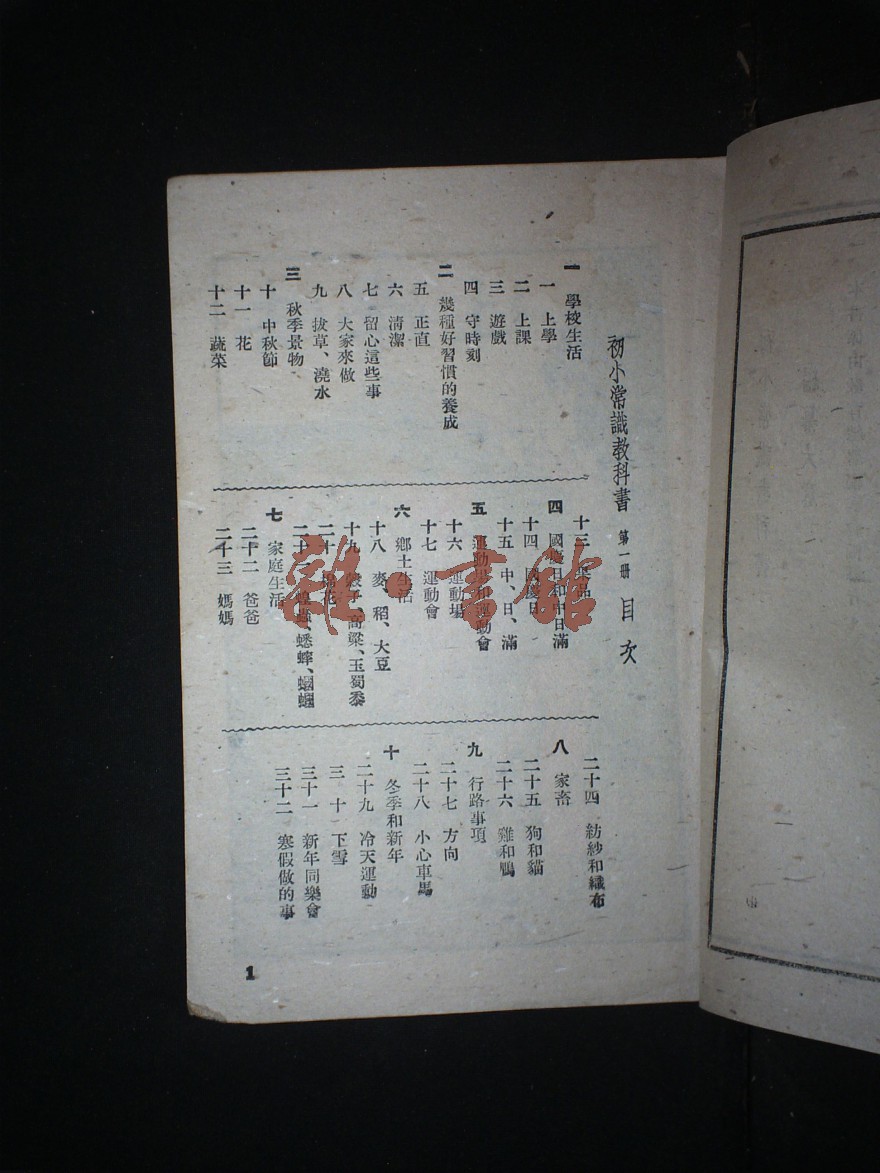 初小常識教科書 第一册 目次
一 學校生活
一 上學
二 上課
三 遊戲
四 守時刻
二 幾種好習慣的養成
五 正直
六 淸潔
七 留心這些事
八 大家來做
九 拔草、澆水
三 秋季景物
十 中秋節
十一 花
十二 蔬菜
十三 果品
四 國慶日和中日滿
十四 國慶日
十五 中、日、滿
五 運動場和運動會
十六 運動場
十七 運動會
六 鄉土生活
十八 麥、稻、大豆
十九 穀子、高粱、玉蜀黍
二十 棉花
二十一 蝗蟲、蟋蟀、蟈蟈
七 家庭生活
二十二 爸爸
二十三 媽媽
二十四 紡紗和織布
八 家畜
二十五 狗和貓
二十六 雞和鴨
九 行路事項
二十七 方向
二十八 小心車馬
十 冬季和新年
二十九 冷天運動
三十 下雪
三十一 新年同樂會
三十二 寒假做的事
1
雜·書館